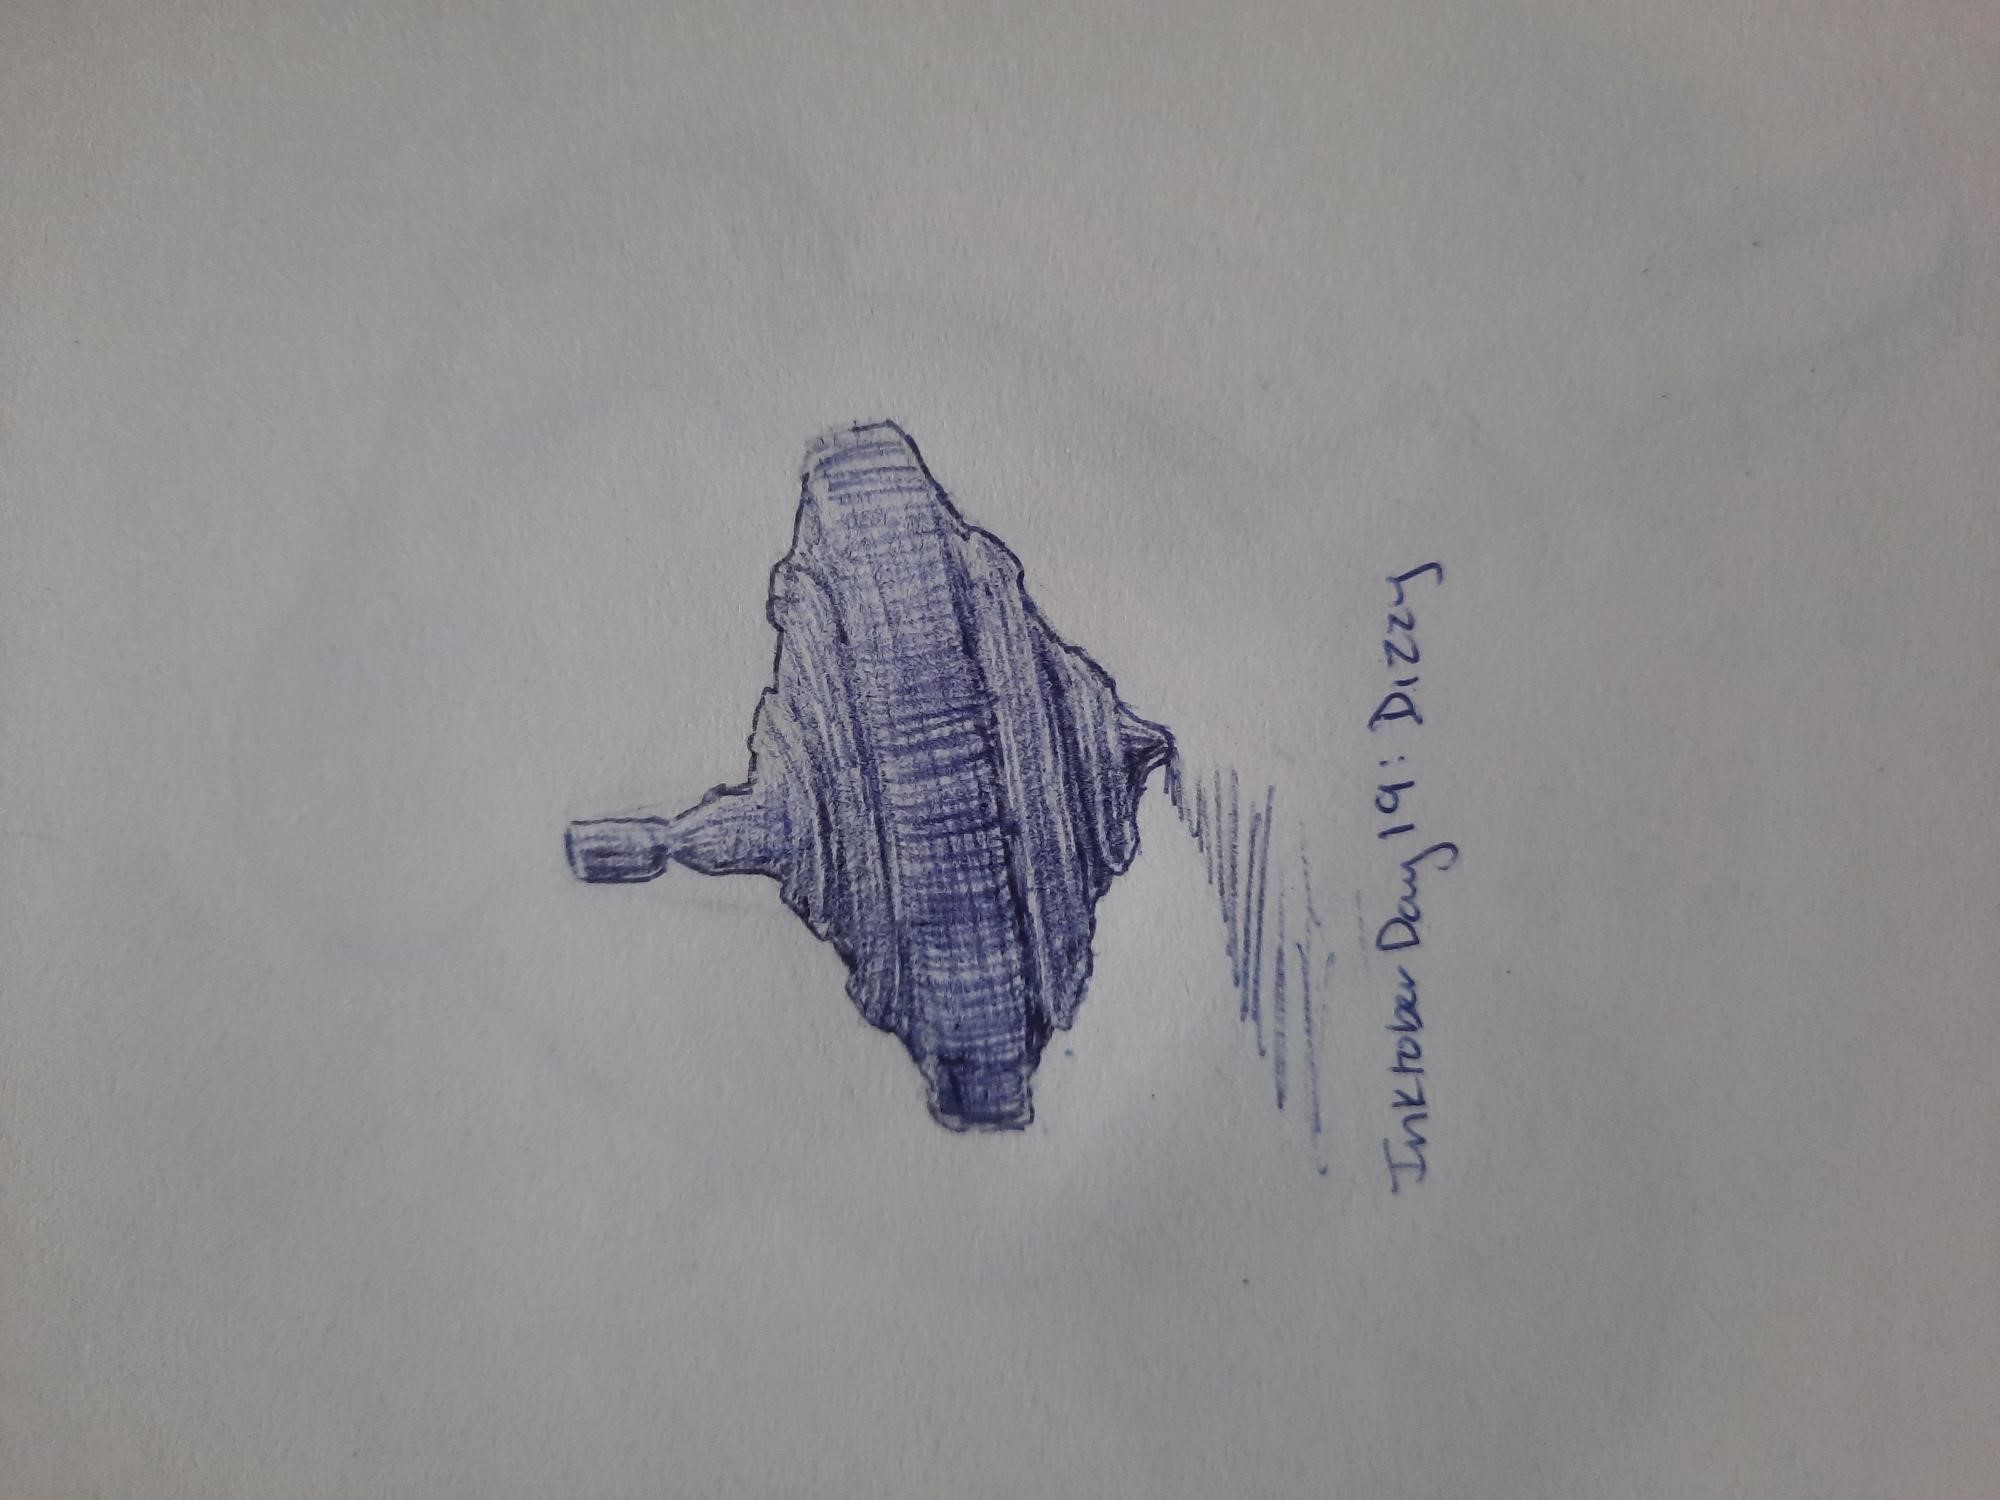 Inktober Day 19: Dizzy